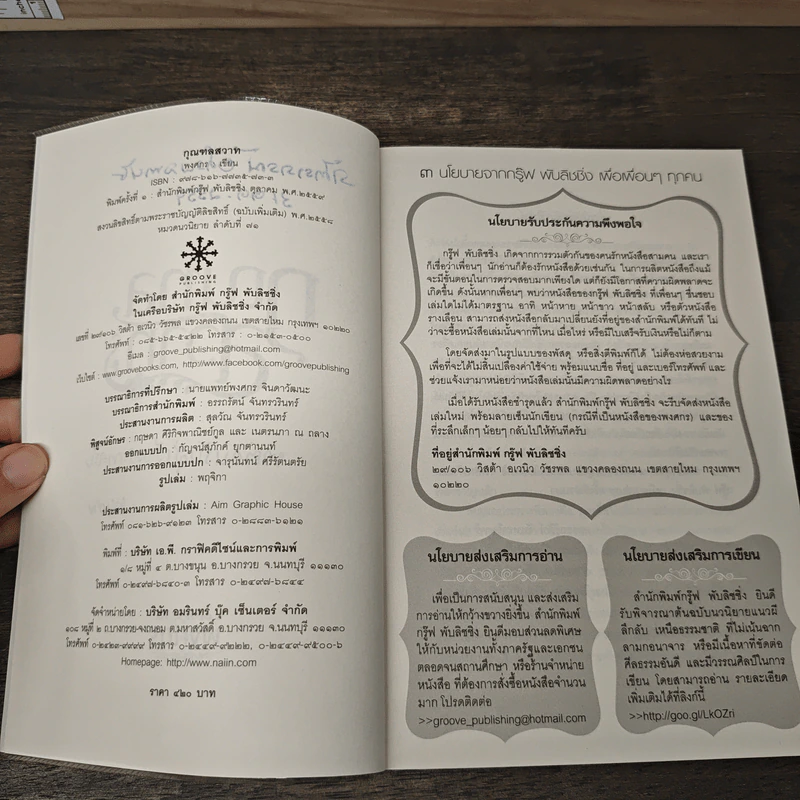 กุณฑลสวาท
พงศกร เขียน
ISBN : ๙๗๘-๖๑๖-๗๗๓๕-๗๓-๓
พิมพ์ครั้งที่ ๑ : สำนักพิมพ์กรู๊ฟ พับลิชชิ่ง ตุลาคม พ.ศ.๒๕๕๙
สงวนลิขสิทธิ์ตามพระราชบัญญัติลิขสิทธิ์ (ฉบับเพิ่มเติม) พ.ศ.๒๕๕๘
หมวดนวนิยาย ลำดับที่ ๗๑
GROOVE
PUBLISHING
จัดทำโดย สำนักพิมพ์ กรู๊ฟ พับลิชชิ่ง
ในเครือบริษัท กรู๊ฟ พับลิชชิ่ง จำกัด
เลขที่ ๒๙/๑๐๖ วิสต้า อเวนิว วัชรพล แขวงคลองถนน เขตสายไหม กรุงเทพฯ ๑๐๒๒๐
โทรศัพท์ : ๐๘๕-๖๖๕-๕๔๒๒ โทรสาร : ๐-๒๑๕๓-๐๕๐๐
อีเมล : groove_publishing@hotmail.com
เว็บไซต์ : www.groovebooks.com, http://www.facebook.com/groovepublishing
บรรณาธิการที่ปรึกษา : นายแพทย์พงศกร จินดาวัฒนะ
บรรณาธิการสำนักพิมพ์ : อรรถรัตน์ จันทรวรินทร์
ประสานงานการผลิต : สุลวัณ จันทรวรินทร์
พิสูจน์อักษร : กฤษดา ศิริกิจพาณิชย์กูล และ เนตรนภา ณ ถลาง
ออกแบบปก : กัญจน์สุภัคค์ ยุกตานนท์
ประสานงานการออกแบบปก : จารุนันทน์ ศรีรัตนตรัย
รูปเล่ม : พฤจิกา
ประสานงานการผลิตรูปเล่ม : Aim Graphic House
โทรศัพท์ ๐๘๑-๖๒๖-๙๑๒๓ โทรสาร ๐-๒๘๘๓-๖๑๒๑
พิมพ์ที่ : บริษัท เอ.พี. กราฟิคดีไซน์และการพิมพ์
๑/๘ หมู่ที่ ๔ ต.บางขนุน อ.บางกรวย จ.นนทบุรี ๑๑๑๓๐
โทรศัพท์ ๐-๒๔๙๗-๖๘๔๐-๓ โทรสาร ๐-๒๔๙๗-๖๘๔๔
จัดจำหน่ายโดย : บริษัท อมรินทร์ บุ๊ค เซ็นเตอร์ จำกัด
๑๐๘ หมู่ที่ ๒ ถ.บางกรวย-จงถนอม ต.มหาสวัสดิ์ อ.บางกรวย จ.นนทบุรี ๑๑๑๓๐
โทรศัพท์ ๐-๒๔๒๓-๙๙๙๙ โทรสาร ๐-๒๔๔๙-๙๒๒๒, ๐-๒๔๔๙-๙๕๐๐-๖
Homepage: http://www.naiin.com
ราคา ๔๒๐ บาท
๓ นโยบายจากกรู๊ฟ พับลิชชิ่ง เพื่อเพื่อนๆ ทุกคน
นโยบายรับประกันความพึงพอใจ
กรู๊ฟ พับลิชชิ่ง เกิดจากการรวมตัวกันของคนรักหนังสือสามคน และเรา
ก็เชื่อว่าเพื่อนๆ นักอ่านก็ต้องรักหนังสือด้วยเช่นกัน ในการผลิตหนังสือถึงแม้
จะมีขั้นตอนในการตรวจสอบมากเพียงใด แต่ก็ยังมีโอกาสที่ความผิดพลาดจะ
เกิดขึ้น ดังนั้นหากเพื่อนๆ พบว่าหนังสือของกรู๊ฟ พับลิชชิ่ง ที่เพื่อนๆ ชื่นชอบ
เล่มใดไม่ได้มาตรฐาน อาทิ หน้าหาย หน้าขาว หน้าสลับ หรือตัวหนังสือ
รางเลือน สามารถส่งหนังสือกลับมาเปลี่ยนยังที่อยู่ของสำนักพิมพ์ได้ทันที ไม่
ว่าจะซื้อหนังสือเล่มนั้นจากที่ไหน เมื่อไหร่ หรือมีใบเสร็จรับเงินหรือไม่ก็ตาม
โดยจัดส่งมาในรูปแบบของพัสดุ หรือสิ่งตีพิมพ์ก็ได้ ไม่ต้องห่อสวยงาม
เพื่อที่จะได้ไม่สิ้นเปลืองค่าใช้จ่าย พร้อมแนบชื่อ ที่อยู่ และเบอร์โทรศัพท์ และ
ช่วยแจ้งเรามาหน่อยว่าหนังสือเล่มนั้นมีความผิดพลาดอย่างไร
เมื่อได้รับหนังสือชำรุดแล้ว สำนักพิมพ์กรู๊ฟ พับลิชชิ่ง จะรีบจัดส่งหนังสือ
เล่มใหม่ พร้อมลายเซ็นนักเขียน (กรณีที่เป็นหนังสือของพงศกร) และของ
ที่ระลึกเล็กๆ น้อยๆ กลับไปให้ทันทีครับ
ที่อยู่สำนักพิมพ์ กรู๊ฟ พับลิชชิ่ง
๒๙/๑๐๖ วิสต้า อเวนิว วัชรพล แขวงคลองถนน เขตสายไหม กรุงเทพฯ
๑๐๒๒๐
นโยบายส่งเสริมการอ่าน
เพื่อเป็นการสนับสนุน และส่งเสริม
การอ่านให้กว้างขวางยิ่งขึ้น สำนักพิมพ์
กรู๊ฟ พับลิชชิ่ง ยินดีมอบส่วนลดพิเศษ
ให้กับหน่วยงานทั้งภาครัฐและเอกชน
ตลอดจนสถานศึกษา หรือร้านจำหน่าย
หนังสือ ที่ต้องการสั่งซื้อหนังสือจำนวน
มาก โปรดติดต่อ
>>groove_publishing@hotmail.com
นโยบายส่งเสริมการเขียน
สำนักพิมพ์กรู๊ฟ พับลิชชิ่ง ยินดี
รับพิจารณาต้นฉบับนวนิยายแนวผี
ลึกลับ เหนือธรรมชาติ ที่ไม่เน้นฉาก
ลามกอนาจาร หรือมีเนื้อหาที่ขัดต่อ
ศีลธรรมอันดี และมีวรรณศิลป์ในการ
เขียน โดยสามารถอ่าน รายละเอียด
เพิ่มเติมได้ที่ลิงก์นี้
>>http://goo.gl/LkOZri